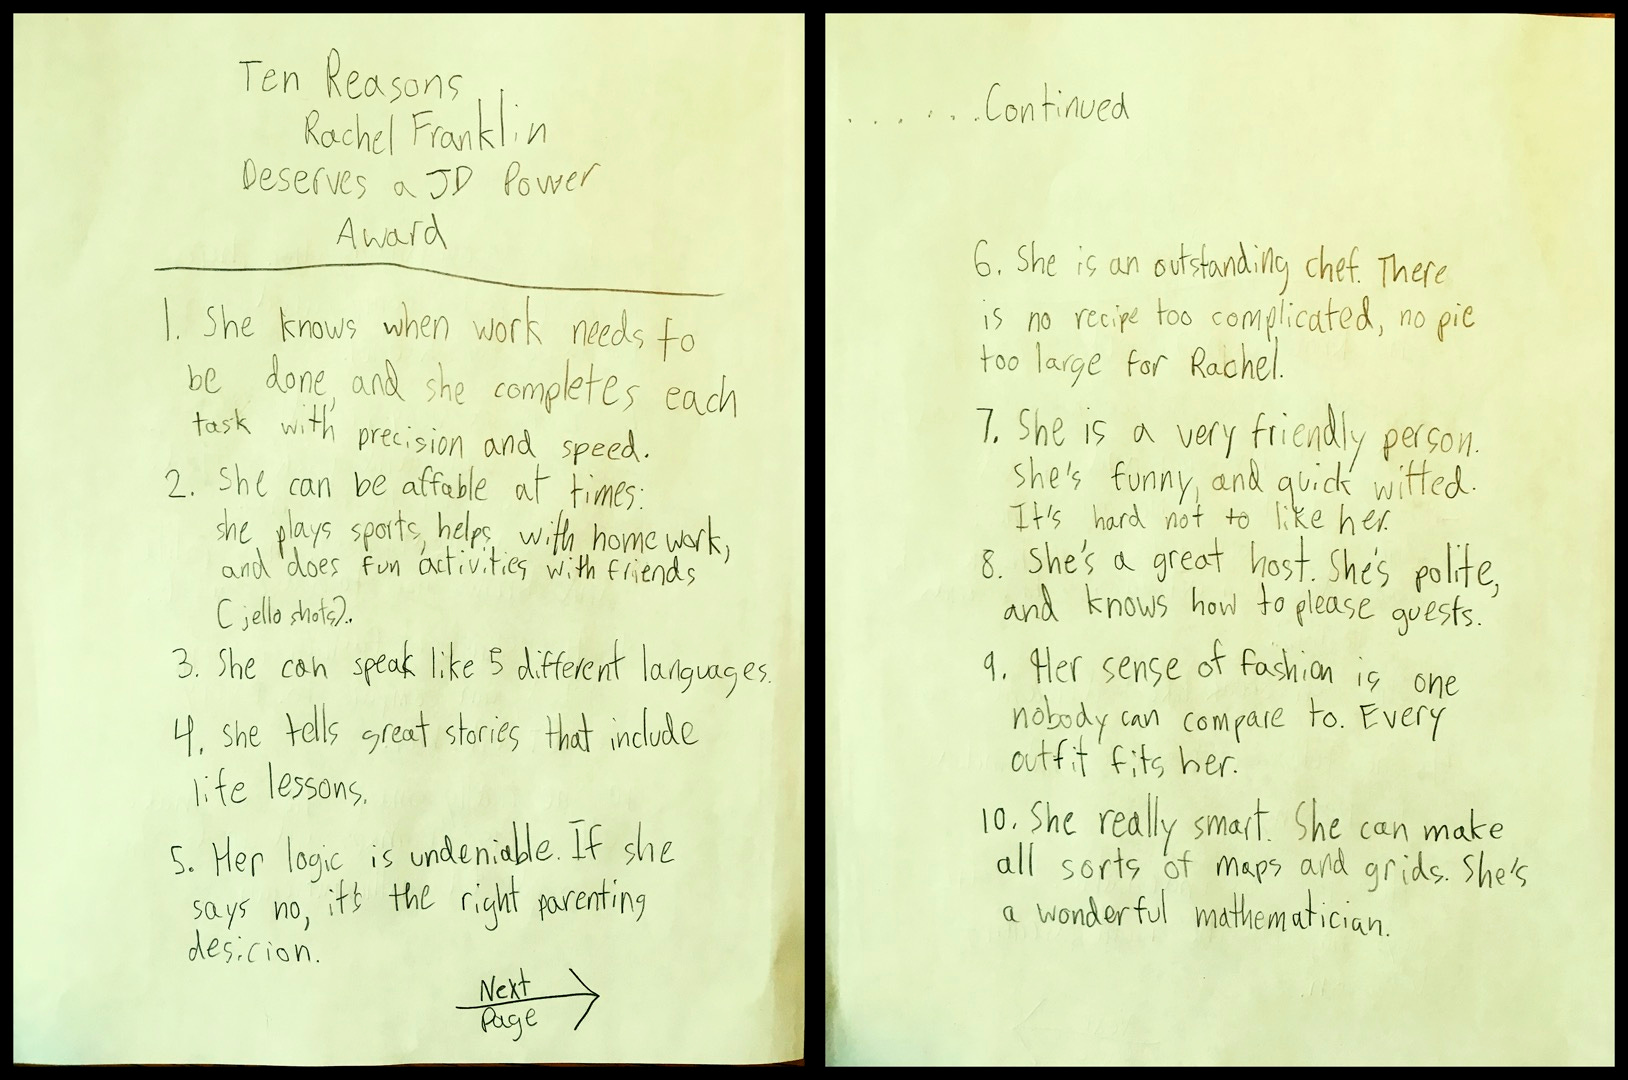 Ten Reasons
Rachel Franklin
Deserves a JD Power
Award
1. She knows when work needs to
be done, and she completes each
task with precision and speed.
2. She can be affable at times:
she plays sports, helps with homework,
and does fun activities with friends
(jello shots).
3. She can speak like 5 different languages.
4. She tells great stories that include
life lessons.
5. Her logic is undeniable. If she
says no, it's the right parenting
desicion.
Next
Page
......Continued
6. She is an outstanding chef. There
is no recipe too complicated, no pie
too large for Rachel.
7. She is a very friendly person.
She's funny, and quick witted.
It's hard not to like her.
8. She's a great host. She's polite,
and knows how to please guests.
9. Her sense of fashion is one
nobody can compare to. Every
outfit fits her.
10. She really smart. She can make
all sorts of maps and grids. She's
a wonderful mathematician.